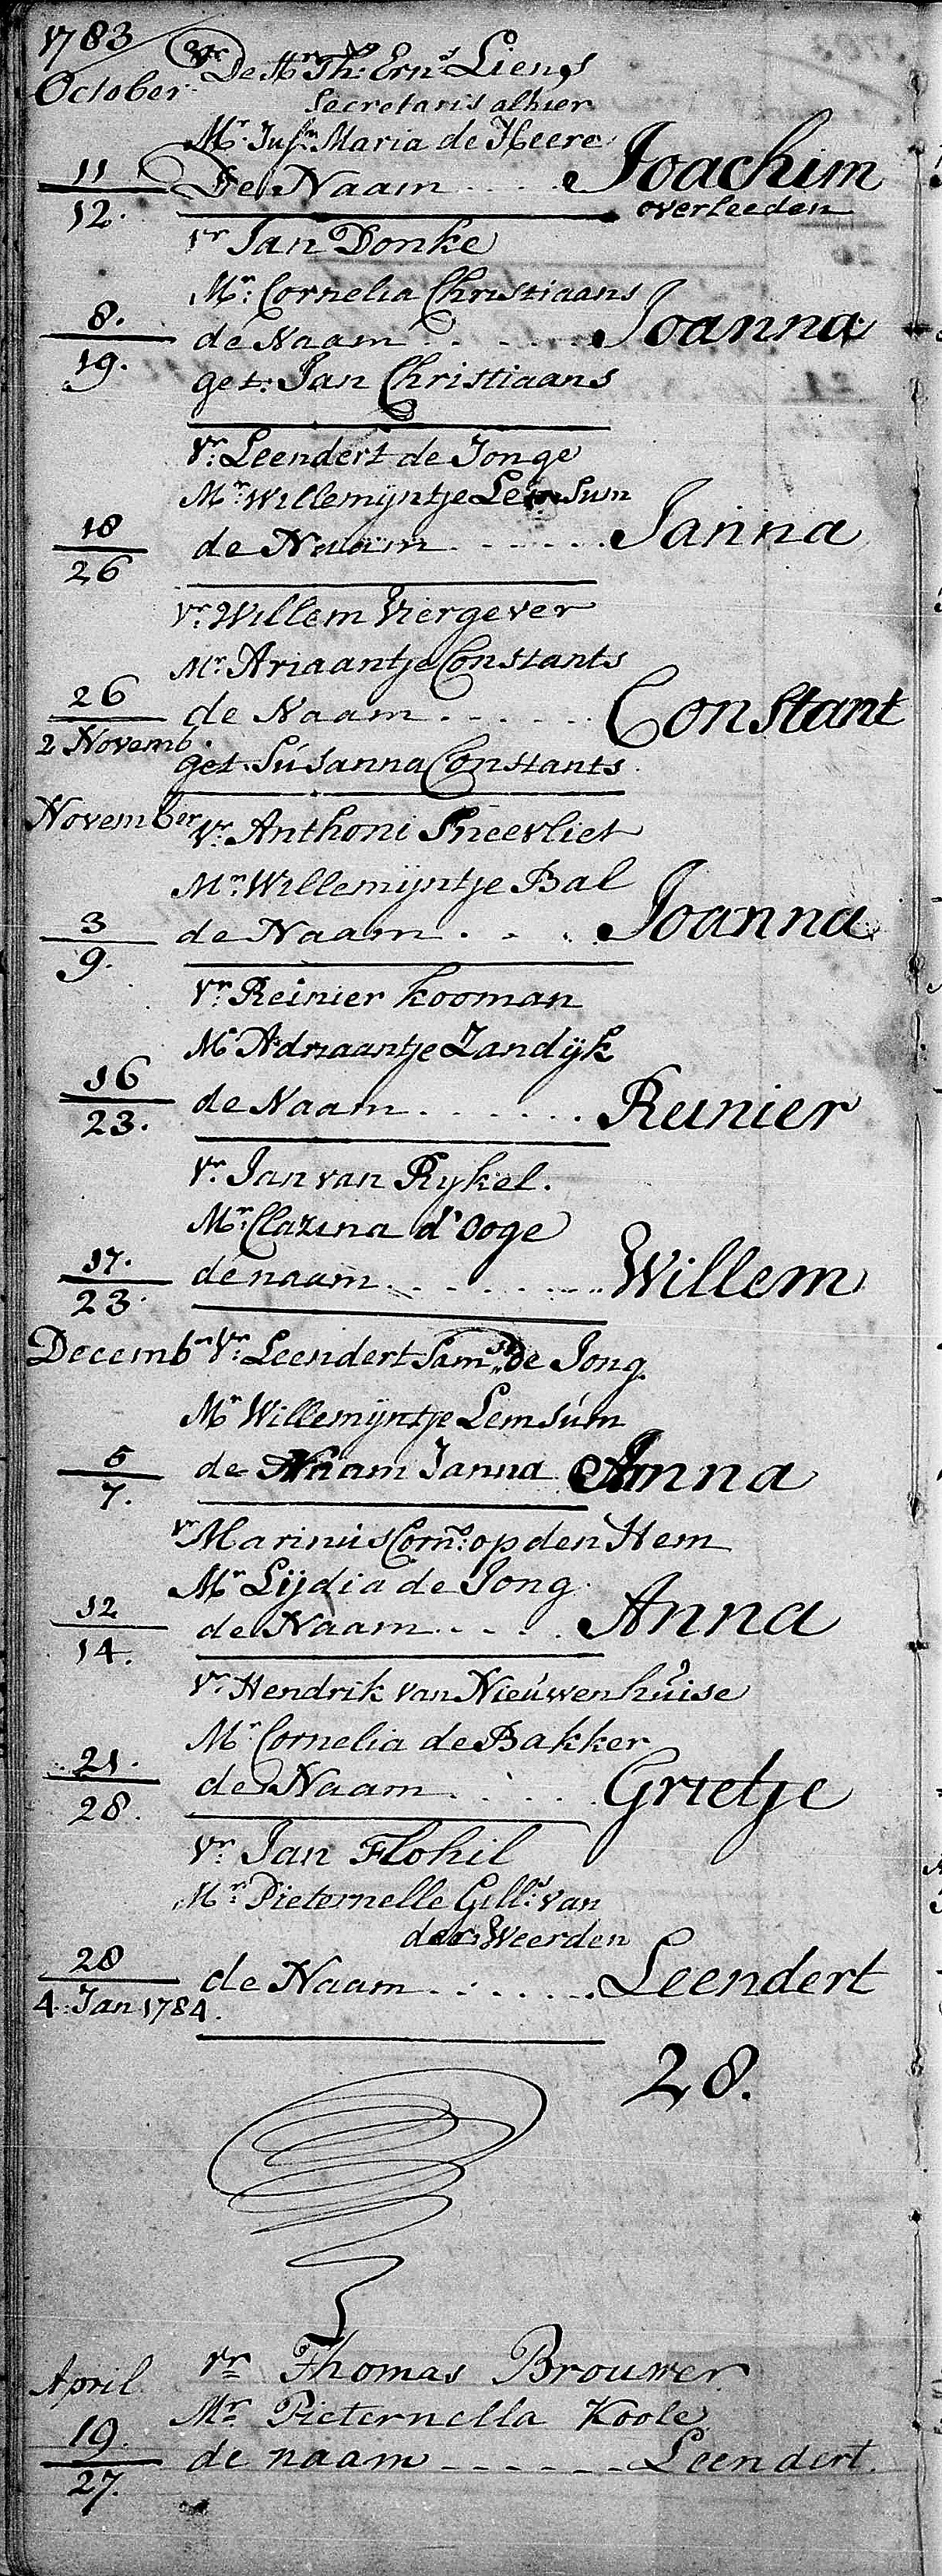 1783
October
Vr De Hr Th: Erns Liens
Secretaris alhier
Mr. Jufr Maria de Heere
11/12. De Naam .... Joachim
overleeden
Vr Jan Donke
Mr: Cornelia Christiaans
8./19. de Naam ..... Joanna
get: Jan Christiaans
Vr: Leendert de Jonge
Mr Willemijntje Lemsum
18/26 de Naam ...... Janna
Vr. Willem Viergever
Mr Ariaantje Constants
26/2 Novemb. de Naam ...... Constant
get. Súsanna Constants
November
Vr. Anthoni Sneevliet
Mr Willemijntje Bal
3/9. de Naam .... Joanna
Vr. Reinier Kooman
Mr Adriaantje Zandijk
16/23. de Naam ....... Reinier
Vr. Jan van Rykel.
Mr: Clazina d'Ooge
17./23. de naam ........ Willem
Decembr
Vr. Leendert Sams de Jong
Mr Willemijntje Lemsúm
5/7. de Naam Janna Anna
Vr Marinús Corns: op den Hem
Mr Lijdia de Jong.
12/14. de Naam .... Anna
Vr. Hendrik van Nieúwenhúise
Mr Cornelia de Bakker
21./28. de Naam ..... Grietje
Vr. Jan Flohil
Mr Pieternelle Gills: van
der Weerden
28/4. Jan 1784. de Naam ...... Leendert
28.
April
Vr Thomas Brouwer
Mr. Pieternella Koole
19./27. de naam ------ Leendert.